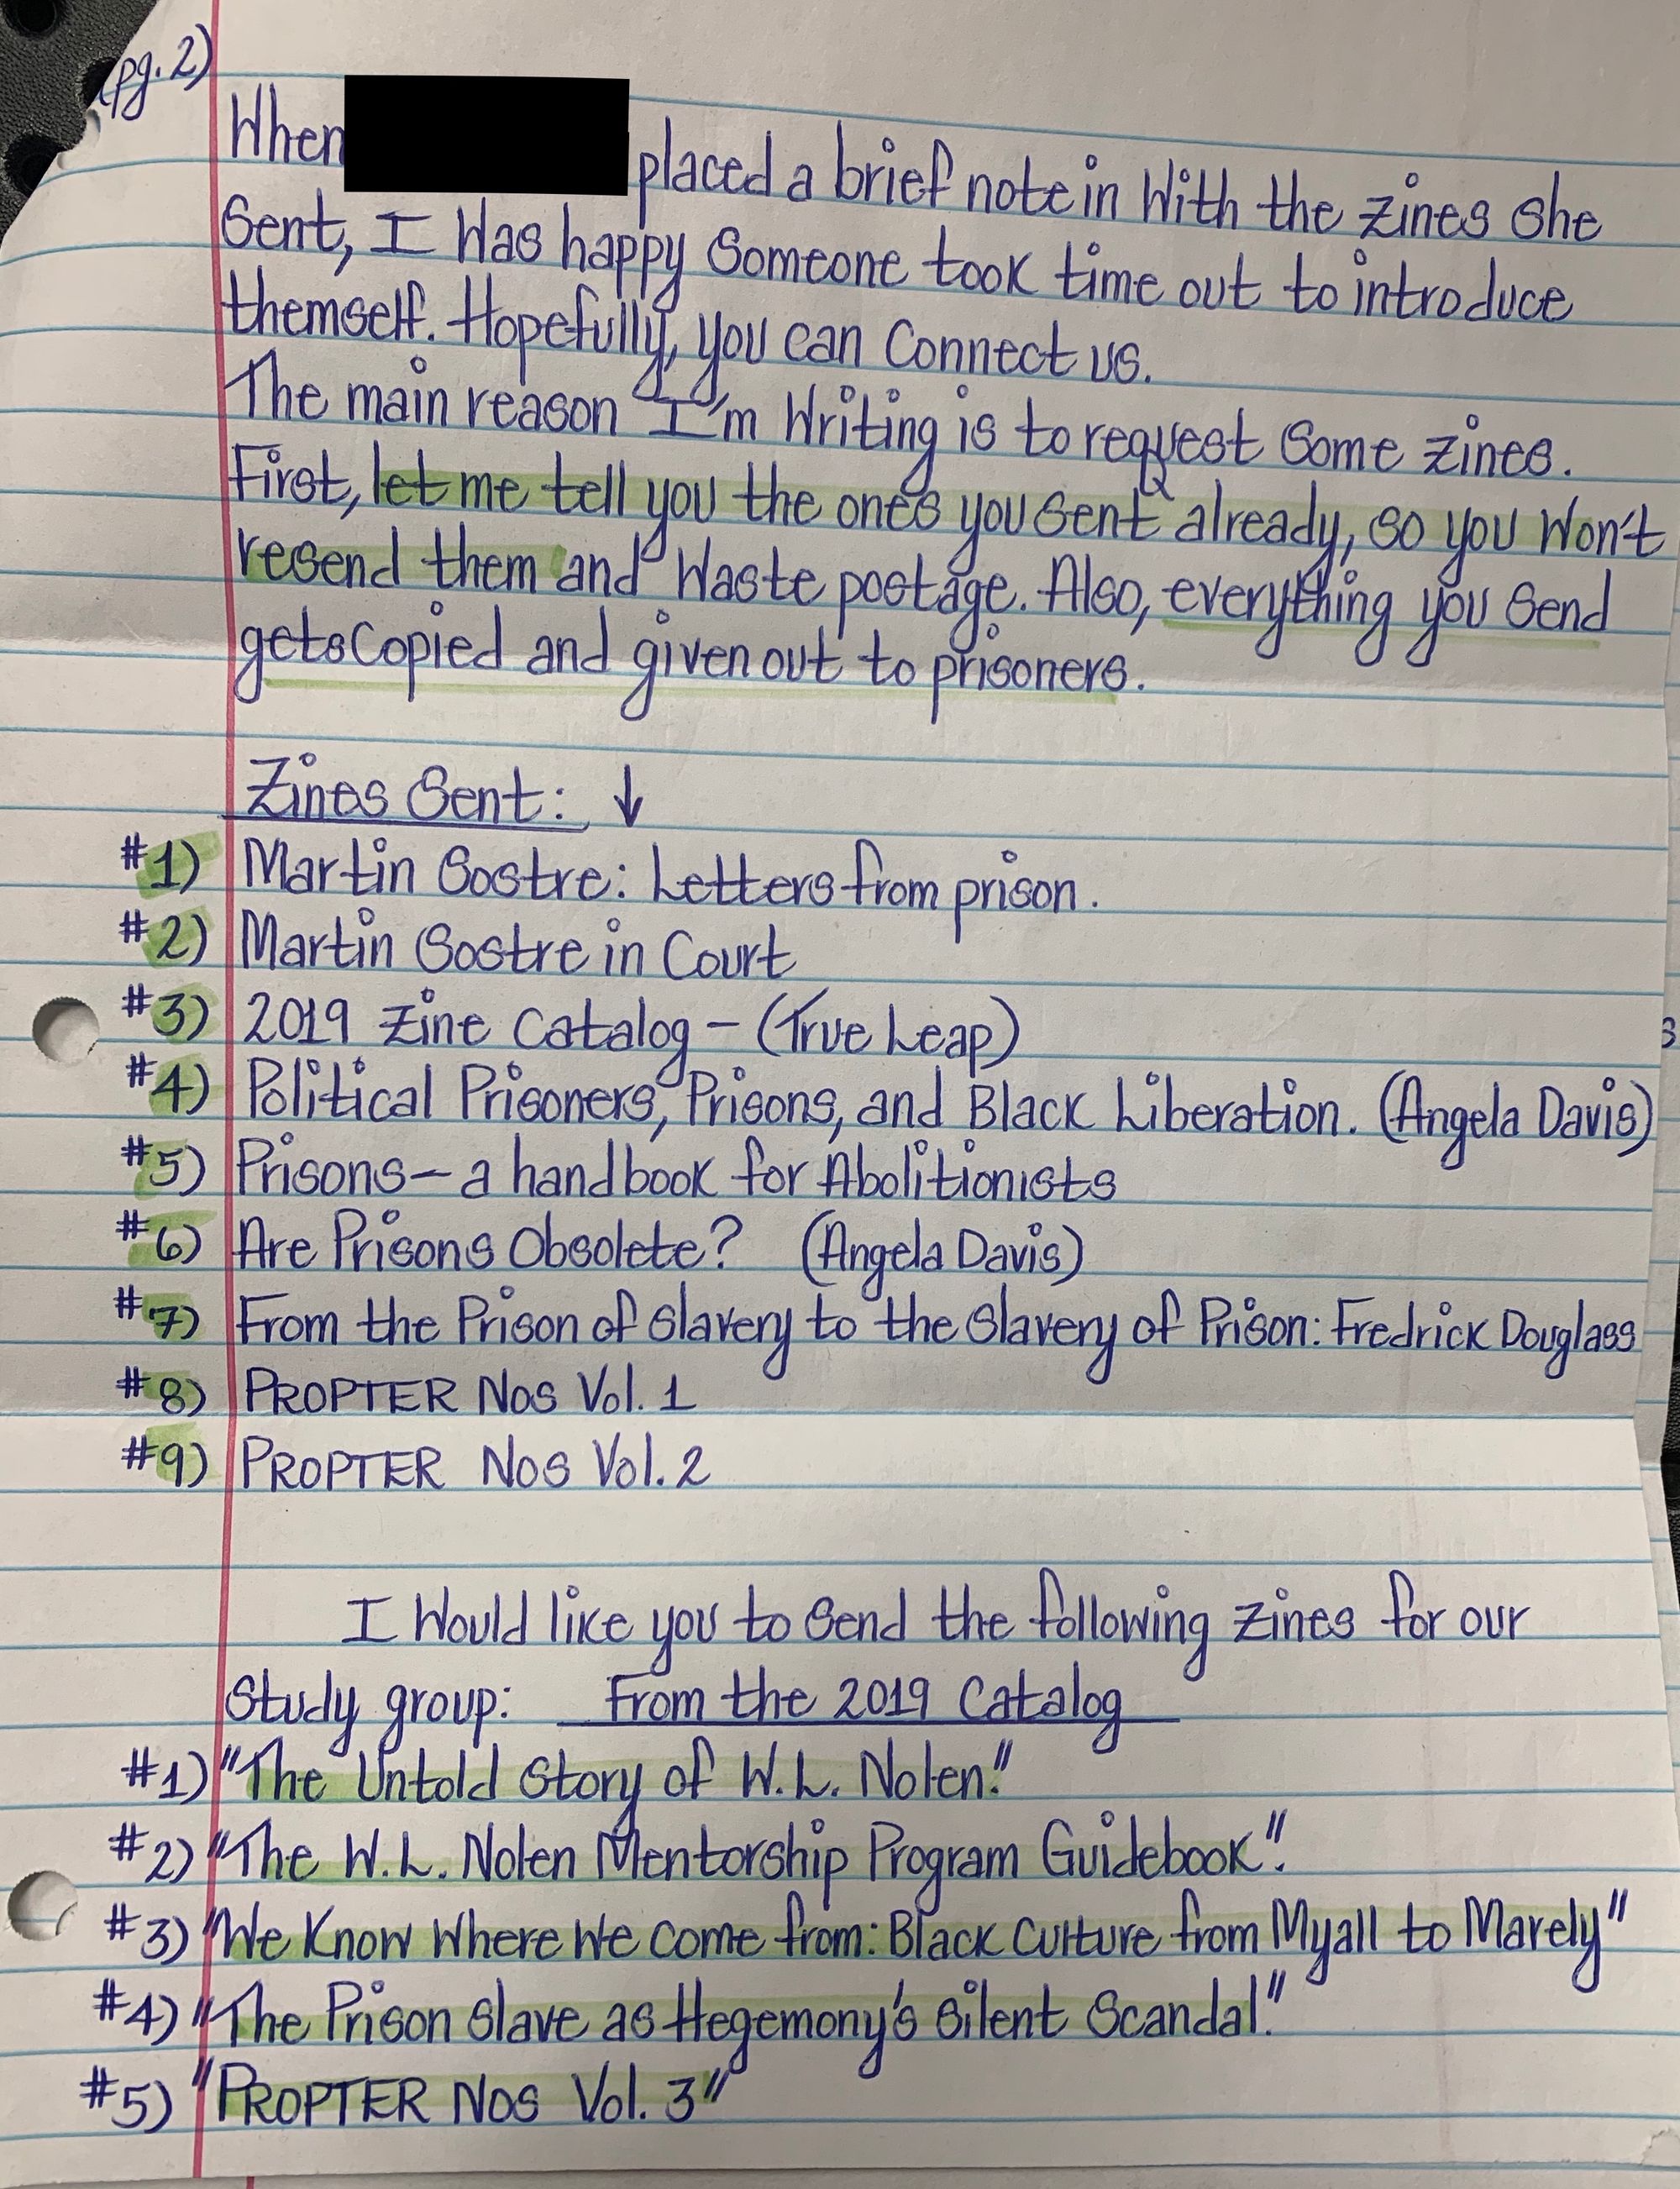 (pg. 2)
When placed a brief note in With the zines she
sent, I Was happy someone took time out to introduce
themself. Hopefully, you can connect us.
The main reason I'm Writing is to request some zines.
First, let me tell you the ones you sent already, so you Won't
resend them and Waste postage. Also, everything you send
gets copied and given out to prisoners.
Zines Sent: ↓
#1) Martin Sostre: Letters from prison.
#2) Martin Sostre in Court
#3) 2019 Zine Catalog - (True Leap)
#4) Political Prisoners, Prisons, and Black Liberation. (Angela Davis)
#5) Prisons - a handbook for Abolitionists
#6) Are Prisons Obsolete? (Angela Davis)
#7) From the Prison of slavery to the slavery of Prison: Fredrick Douglass
#8) PROPTER NOS Vol. 1
#9) PROPTER NOS Vol. 2
I Would like you to send the following zines for our
study group: From the 2019 Catalog
#1) "The Untold story of W.L. Nolen."
#2) "The W.L. Nolen Mentorship Program Guidebook".
#3) "We Know Where We come from: Black Culture from Myall to Marely"
#4) "The Prison slave as Hegemony's silent Scandal."
#5) "PROPTER NOS Vol. 3"